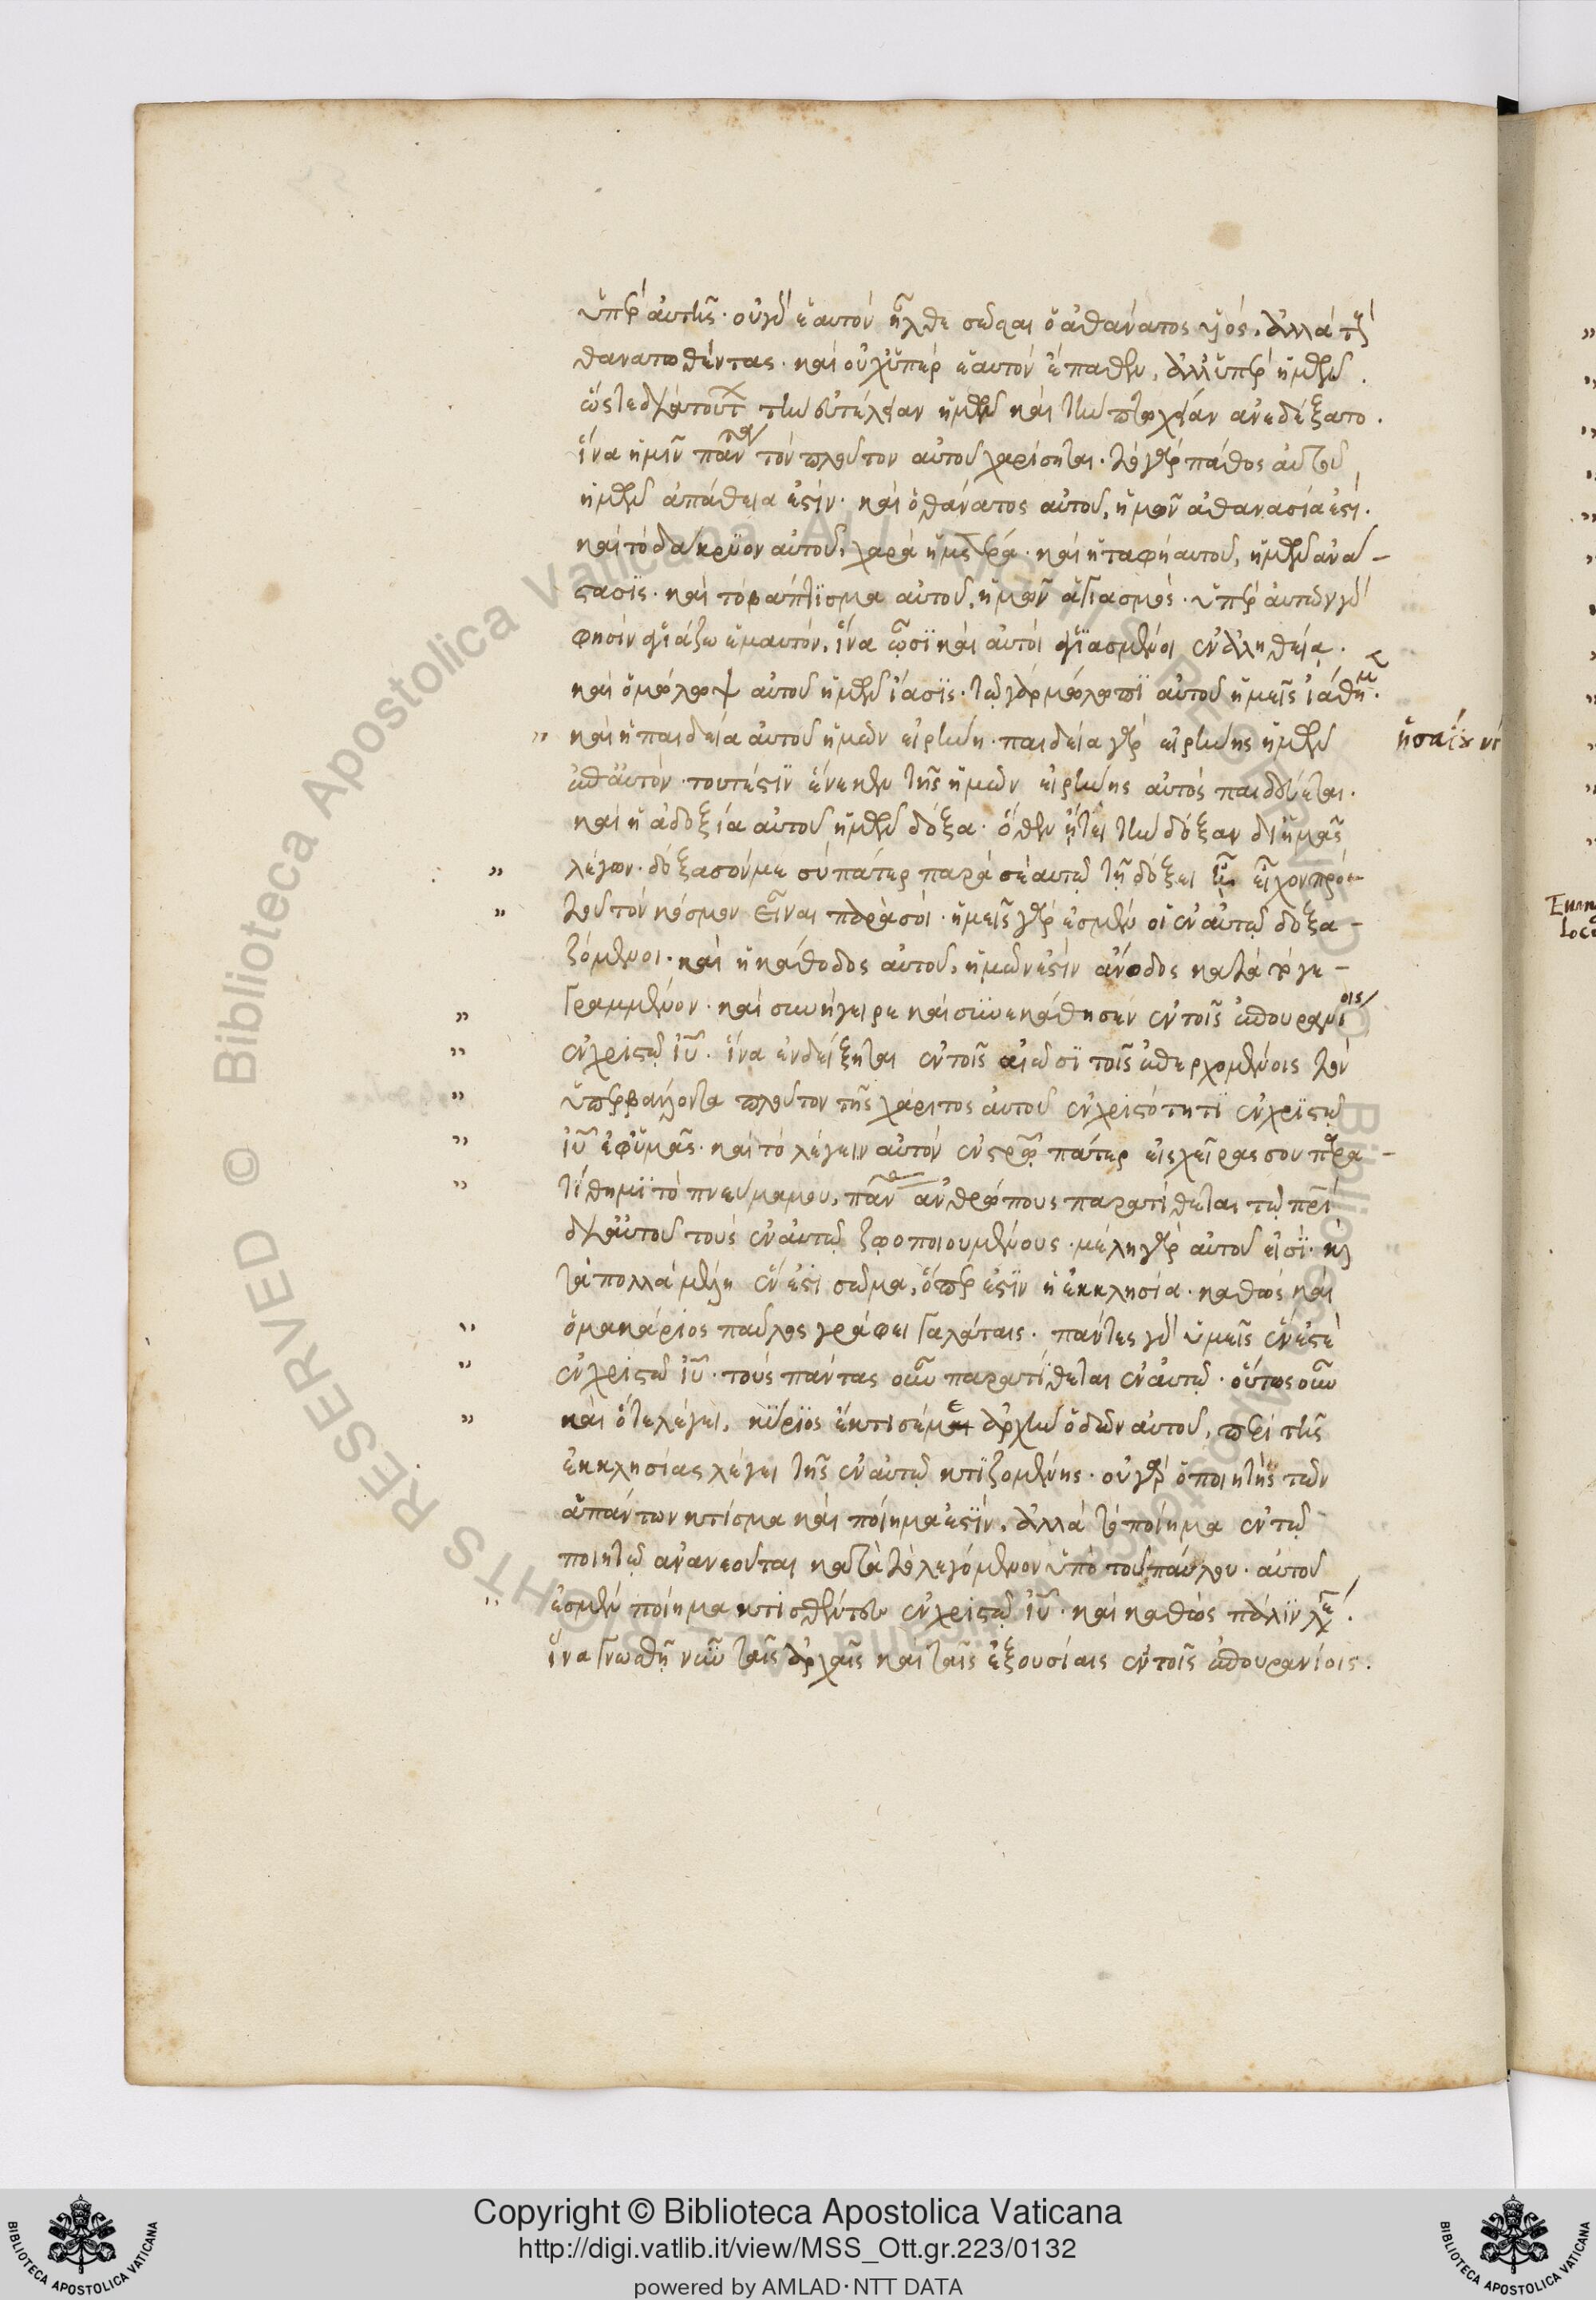 ὑπὲρ αὐτῆς· οὐ γὰρ ἑαυτὸν ἦλθε σῶσαι ὁ ἀθάνατος υἱός, ἀλλὰ τοὺς
θανατωθέντας· καὶ οὐχ ὑπὲρ ἑαυτὸν ἔπαθεν, ἀλλ' ὑπὲρ ἡμῶν.
ὥστε διὰ τοῦτ τὴν εὐτέλειαν ἡμῶν καὶ τὴν πτωχείαν ἀνεδέξατο.
ἵνα ἡμῖν πᾶν τὸν πλοῦτον αὐτοῦ χαρίσηται· τὸ γὰρ πάθος αὐτοῦ
ἡμῶν ἀπάθεια ἐστίν· καὶ ὁ θάνατος αὐτοῦ, ἡμῶν ἀθανασία ἐστί·
καὶ τὸ δάκρυον αὐτοῦ, χαρὰ ἡμετέρα· καὶ ἡ ταφὴ αὐτοῦ, ἡμῶν ἀνά-
στασις· καὶ τὸ βάπτισμα αὐτοῦ, ἡμῶν ἁγιασμός· ὑπὲρ αὐτῶν γὰρ
φησὶν ἁγιάζω ἐμαυτὸν, ἵνα ὦσι καὶ αὐτοὶ ἡγιασμένοι ἐν ἀληθείᾳ.
καὶ ὁ μώλωψ αὐτοῦ ἡμῶν ἴασις· τῷ γὰρ μώλωπι αὐτοῦ ἡμεῖς ἰάθημ.
" καὶ ἡ παιδεία αὐτοῦ ἡμῶν εἰρήνη· παιδεία γὰρ εἰρήνης ἡμῶν ἡσαΐου νγ
ἐπ' αὐτόν· τουτέστιν ἕνεκεν τῆς ἡμῶν εἰρήνης αὐτὸς παιδεύεται.
καὶ ἡ ἀδοξία αὐτοῦ ἡμῶν δόξα· ὅθεν ᾔτει τὴν δόξαν δι' ἡμᾶς
" λέγων· δόξασόν με σὺ πάτερ παρὰ σεαυτῷ τῇ δόξει ᾗ εἶχον πρὸ
" τοῦ τὸν κόσμον εἶναι παρὰ σοί· ἡμεῖς γὰρ ἐσμὲν οἱ ἐν αὐτῷ δοξα-
ζόμενοι· καὶ ἡ κάθοδος αὐτοῦ, ἡμῶν ἐστὶν ἄνοδος κατὰ τὸ γε-
" γραμμένον· καὶ συνήγειρε καὶ συνεκάθησεν ἐν τοῖς ἐπουρανίοις
" ἐν χριστῷ ἰῦ· ἵνα ἐνδείξηται ἐν τοῖς αἰῶσι τοῖς ἐπερχομένοις τὸν
" ὑπερβάλλοντα πλοῦτον τῆς χάριτος αὐτοῦ ἐν χριστότητι ἐν χριστῷ
" ἰῦ ἐφ' ὑμᾶς· καὶ τὸ λέγειν αὐτὸν ἐν στρῷ πάτερ εἰς χεῖρας σου παρα-
" τίθημι τὸ πνεῦμα μου, πᾶν ἀνθρώπους παρατίθεται τῷ πρὶ
δι' αὐτοῦ τοὺς ἐν αὐτῷ ζωοποιουμένους· μέλη γὰρ αὐτοῦ εἰσί· κ
τὰ πολλὰ μέλη ἕν ἐστι σῶμα, ὅπερ ἐστὶν ἡ ἐκκλησία· καθὼς καὶ
" ὁ μακάριος παῦλος γράφει γαλάταις· πάντες γὰρ ὑμεῖς ἕν ἐστὲ
" ἐν χριστῷ ἰῦ· τοὺς πάντας οὖν παρατίθεται ἐν αὐτῷ· οὕτως οὖν
" καὶ ὅτε λέγει, κύριος ἔκτισέ με ἀρχὴν ὁδῶν αὐτοῦ, περὶ τῆς
ἐκκλησίας λέγει τῆς ἐν αὐτῷ κτιζομένης· οὐ γὰρ ὁ ποιητὴς τῶν
ἁπάντων κτίσμα καὶ ποίημα ἐστίν, ἀλλὰ τὸ ποίημα ἐν τῷ
ποιητῷ ἀνανεοῦται κατὰ τὸ λεγόμενον ὑπὸ τοῦ παύλου· αὐτοῦ
" ἐσμὲν ποίημα κτισθέντες ἐν χριστῷ ἰῦ· καὶ καθὼς πάλιν λέγει.
ἵνα γνωσθῇ νῦν ταῖς ἀρχαῖς καὶ ταῖς ἐξουσίαις ἐν τοῖς ἐπουρανίοις.
Copyright © Biblioteca Apostolica Vaticana
http://digi.vatlib.it/view/MSS_Ott.gr.223/0132
powered by AMLAD·NTT DATA
BIBLIOTECA APOSTOLICA VATICANA
BIBLIOTECA APOSTOLICA VATICANA